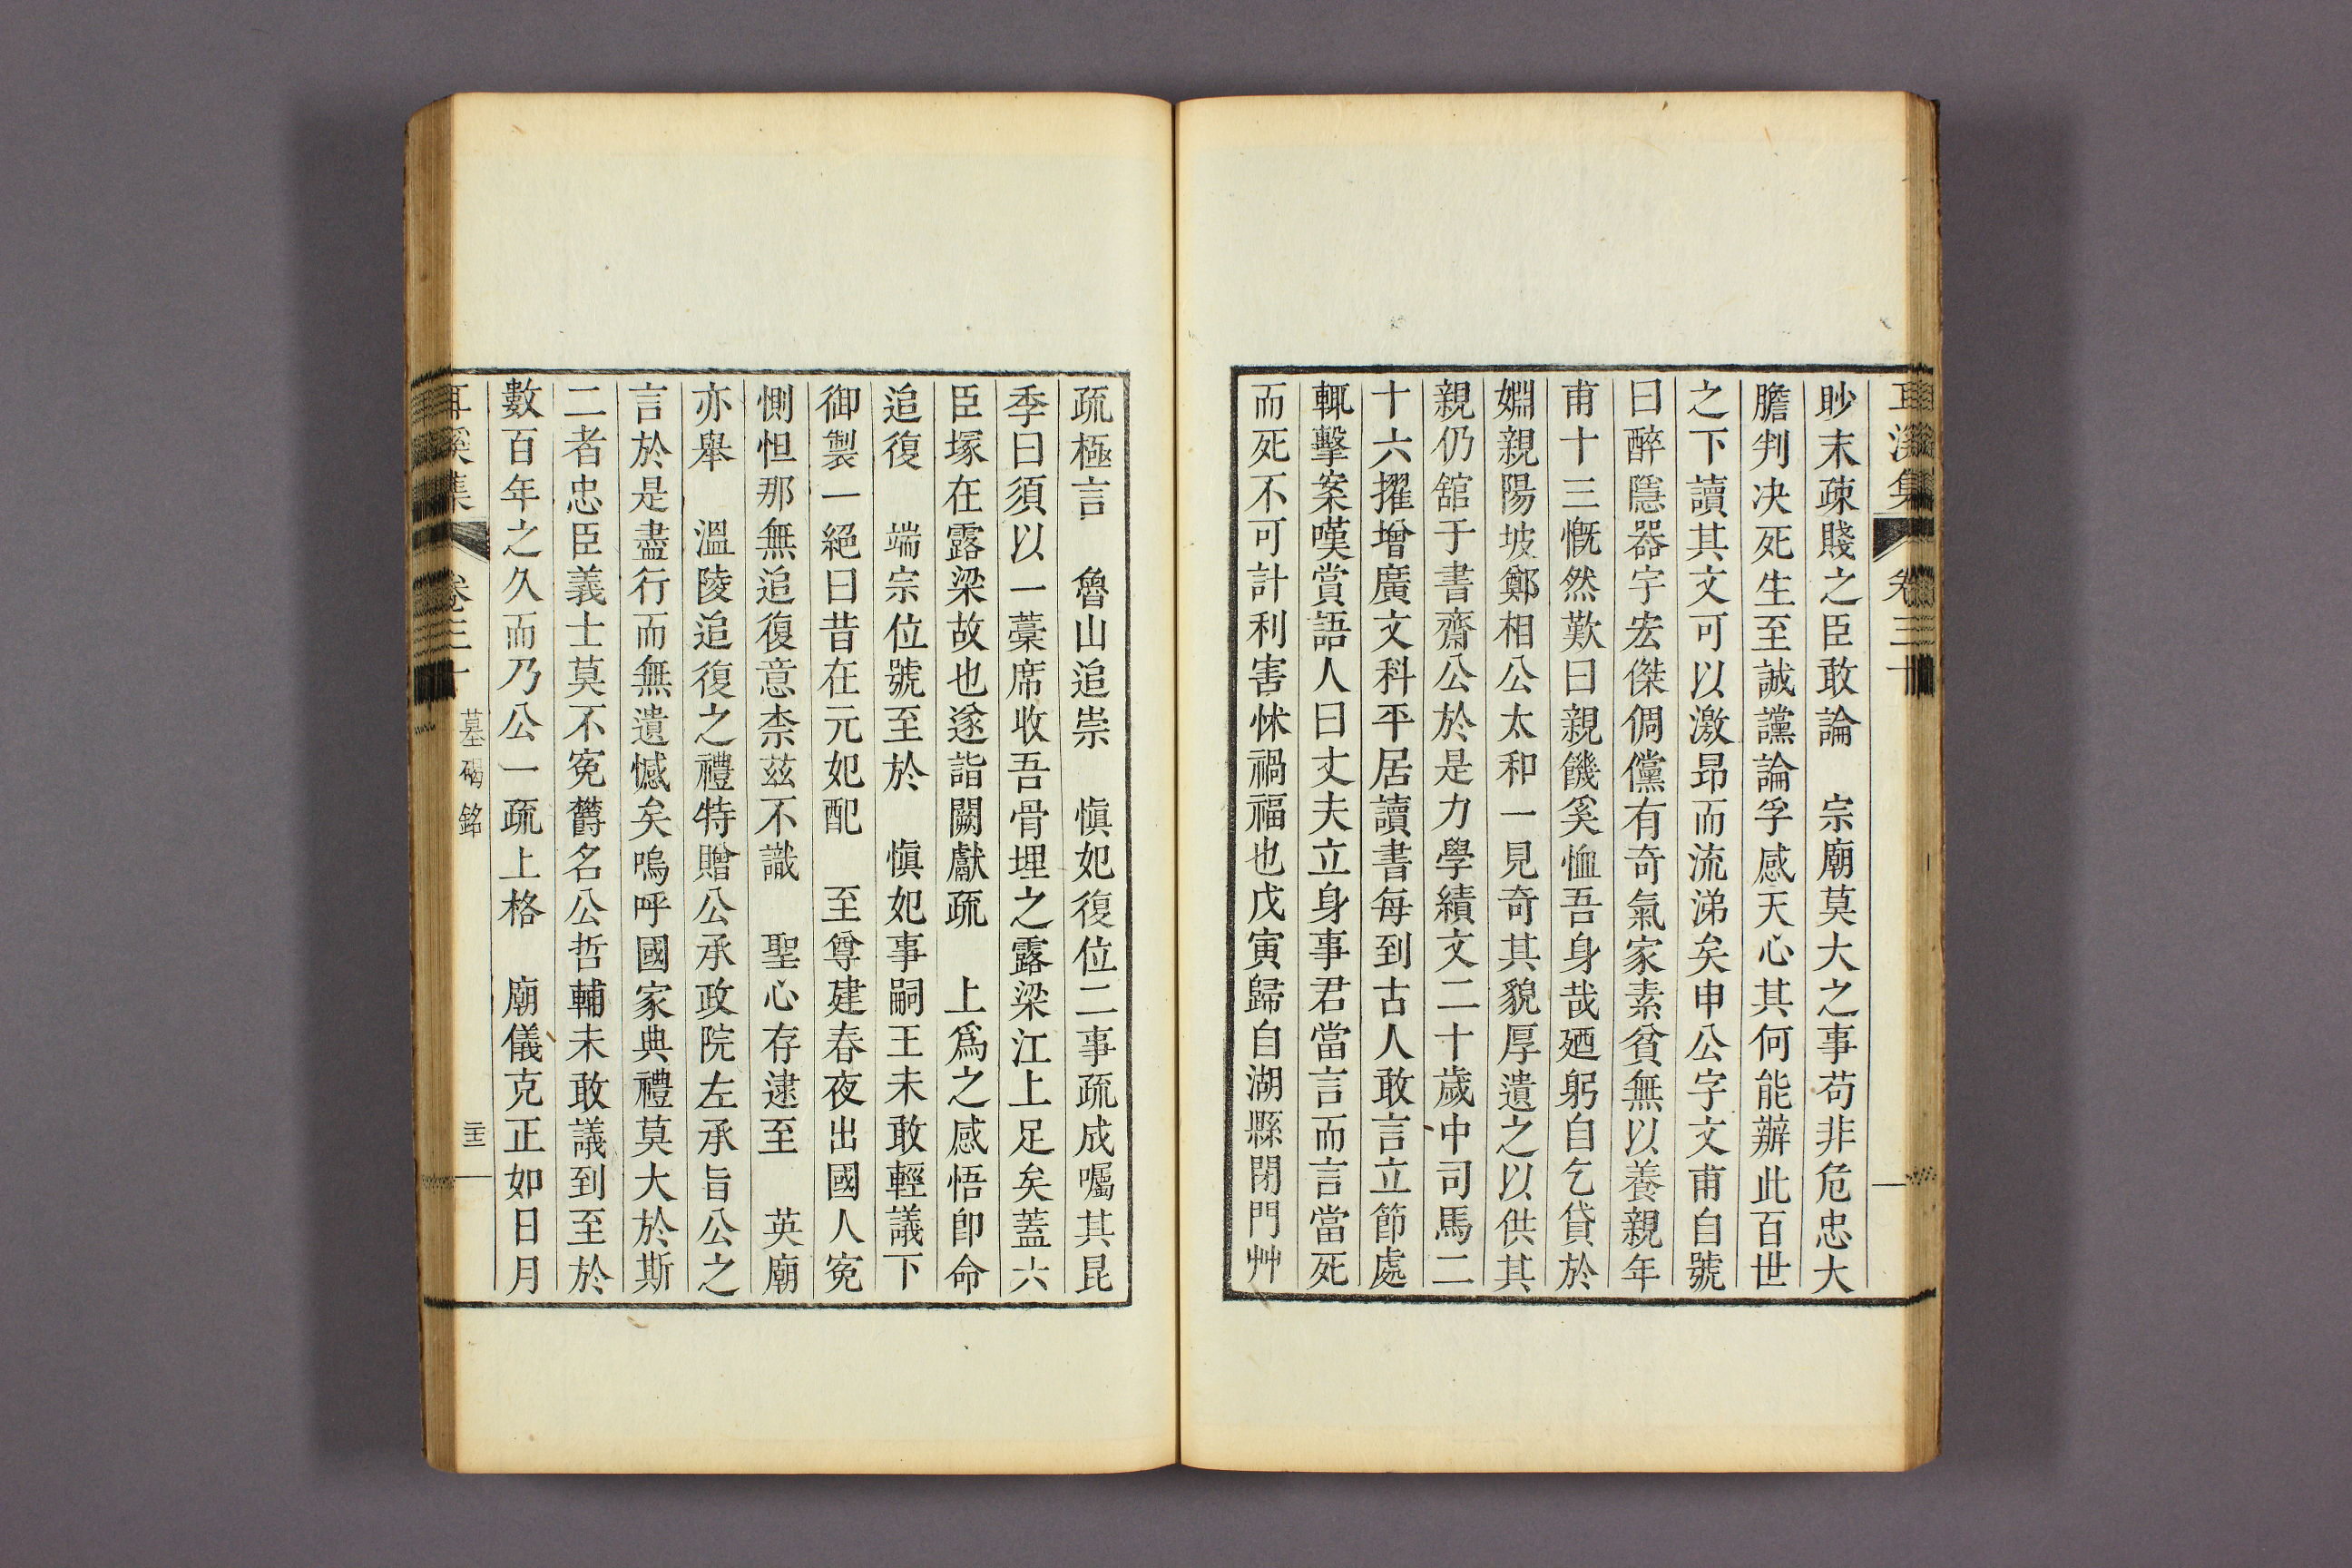 耳溪集 卷三十
眇末疎賤之臣敢論　宗廟莫大之事苟非危忠大
膽判决死生至誠讜論孚感天心其何能辦此百世
之下讀其文可以激昂而流涕矣申公字文甫自號
曰醉隱器宇宏傑倜儻有奇氣家素貧無以養親年
甫十三慨然歎曰親饑奚恤吾身哉廼躬自乞貸於
婣親陽坡鄭相公太和一見奇其貌厚遺之以供其
親仍舘于書齋公於是力學績文二十歲中司馬二
十六擢增廣文科平居讀書每到古人敢言立節處
輒擊案嘆賞語人曰丈夫立身事君當言而言當死
而死不可計利害怵禍福也戊寅歸自湖縣閉門艸
疏極言　魯山追崇　愼妃復位二事疏成囑其昆
季曰須以一藁席收吾骨埋之露梁江上足矣蓋六
臣塚在露梁故也遂詣闕獻疏　上爲之感悟卽命
追復　端宗位號至於　愼妃事嗣王未敢輕議下
御製一絕曰昔在元妃配　至尊建春夜出國人寃
惻怛那無追復意柰茲不識　聖心存逮至　英廟
亦舉　溫陵追復之禮特贈公承政院左承旨公之
言於是盡行而無遺憾矣嗚呼國家典禮莫大於斯
二者忠臣義士莫不寃欝名公哲輔未敢議到至於
數百年之久而乃公一疏上格　廟儀克正如日月
耳溪集 卷三十 墓碣銘